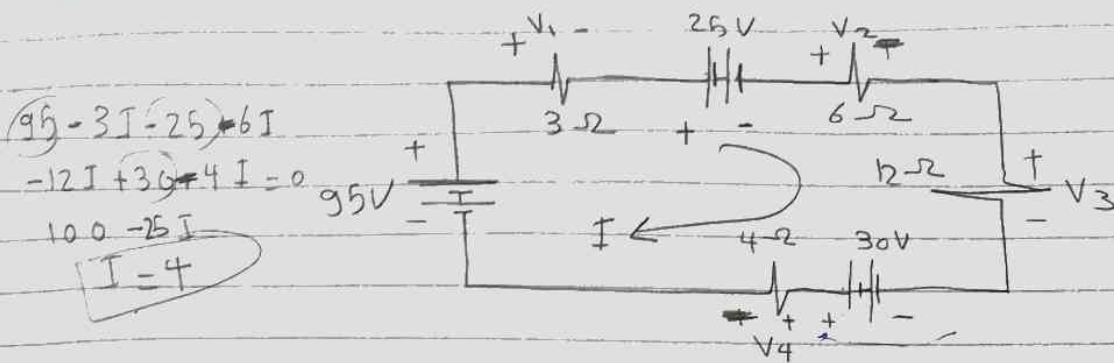 95 - 3I - 25 - 6I
-12I + 30 - 4I = 0
100 - 25I
I = 4
+ V1 -
3Ω
25V
+ -
+ V2 -
6Ω
+
95V
-
I
12Ω
+
V3
-
4Ω
30V
+ + -
V4